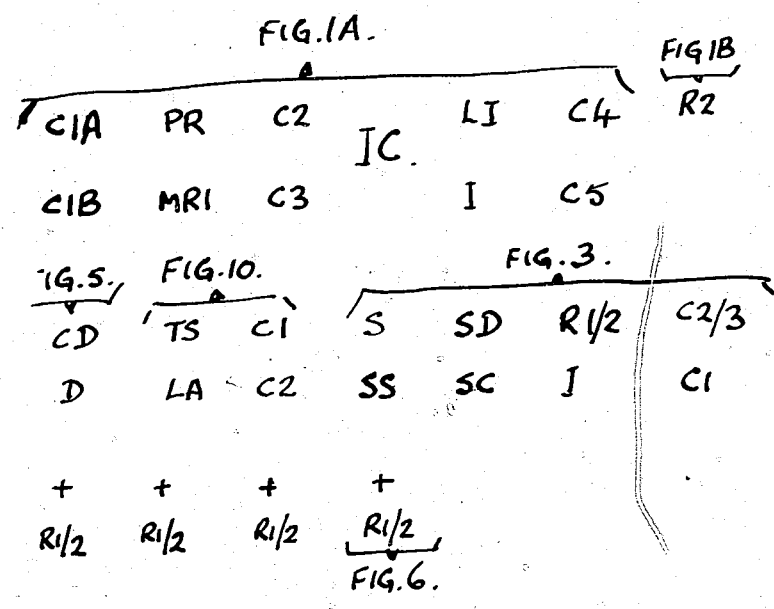 FIG.1A.
FIG 1B
C1A PR C2 LI C4 R2
IC.
C1B MR1 C3 I C5
IG.5. FIG.10. FIG.3.
CD TS C1 S SD R1/2 C2/3
D LA C2 SS SC I C1
+ + + +
R1/2 R1/2 R1/2 R1/2
FIG.6.